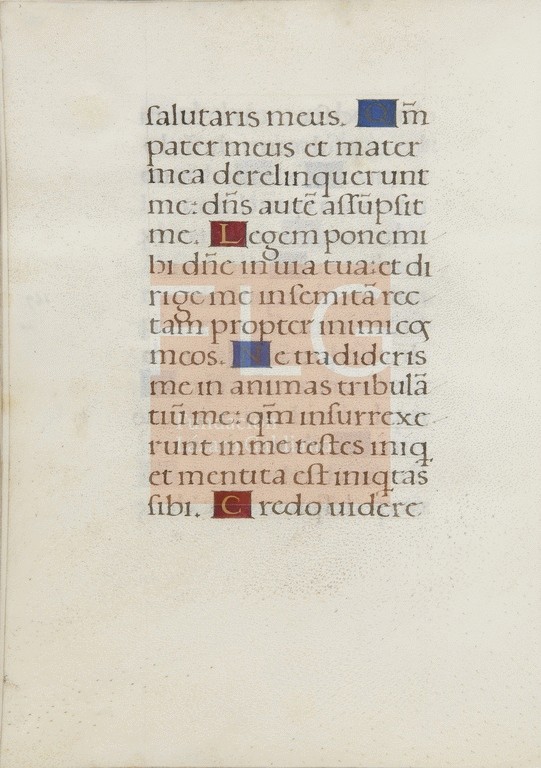 ſalutaris meus. Qm̄
pater meus et mater
mea derelinquerunt
me: dn̄s autē aſſūpſit
me. Legem pone mi
hi dn̄e in uia tua: et di
rige me in ſemitā rec
tam propter inimicoꝝ
meos. Ne tradideris
me in animas tribulā
tiū me: qm̄ inſurrexe
runt in me teſtes iniq
et mentita eſt iniqtas
ſibi. Credo uidere
FLG